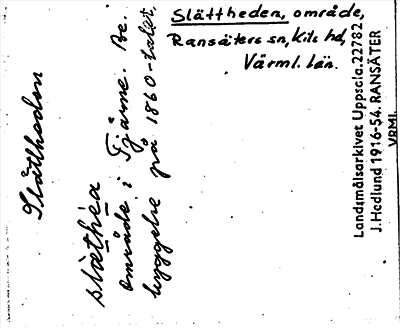 Slättheden, område,
Ransäters sn, Kils hd,
Värml. län.
Slåttheden
slæthéa
område i Tjärne. Be-
byggelse på 1860-talet.
Landsmålsarkivet Uppsala. 22782
J. Hedlund 1916-54. RANSÄTER
VRML.